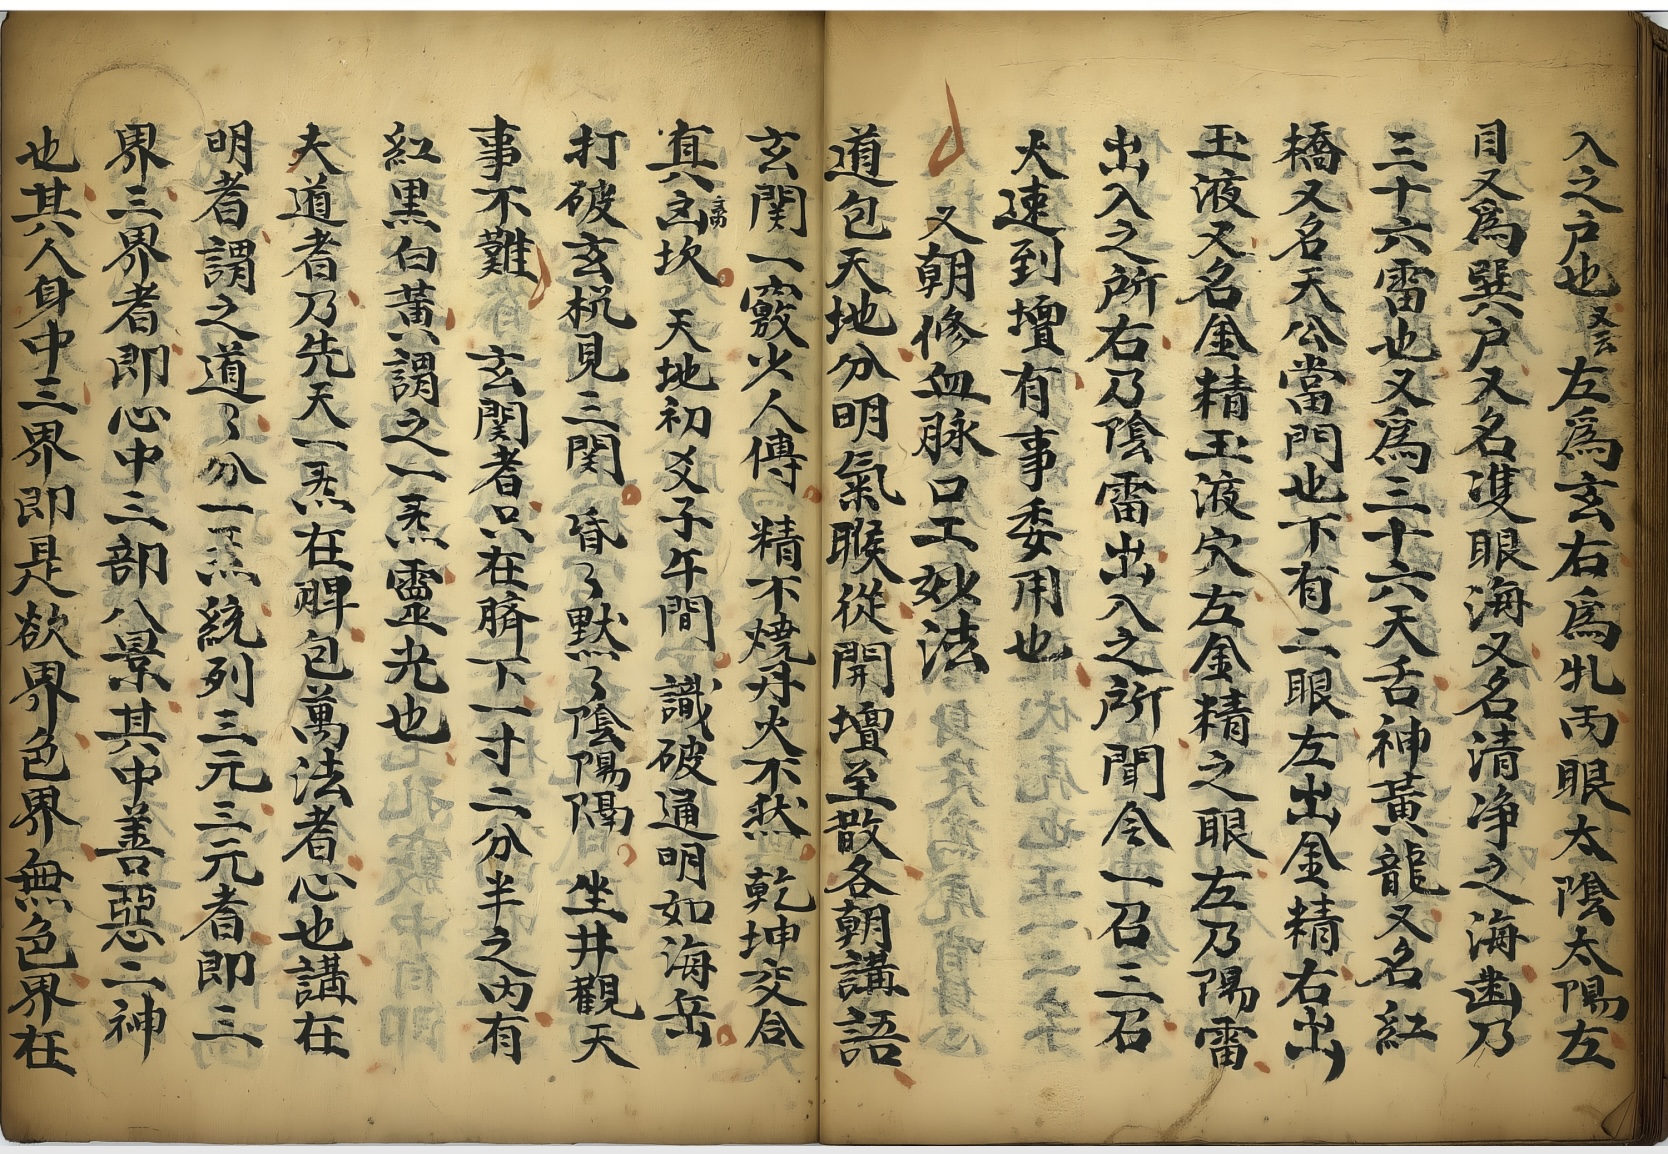 入之戶也又云左為玄右為牝兩眼太陰太陽左
目又為巽戶又名雙眼海又名清净之海齒乃
三十六雷也又為三十六天舌神黃龍又名紅
橋又名天公當門也下有二眼左出金精右出
玉液又名金精玉液穴左金精之眼左乃陽雷
出入之所右乃陰雷出入之所聞令一召三召
火速到壇有事委用也
又朝修血脉口工妙法
道包天地分明氣喉從開壇至散各朝講語
玄関一竅少人傳 精不燒丹火不然 乾坤交合
真玄坎 天地初爻子午間 識破通明如海岳
打破玄梲見三関 昏〻默〻陰陽隔 坐井觀天
事不難 玄関者只在臍下一寸二分半之內有
紅黑白黃謂之一炁靈光也
夫道者乃先天一炁在裨包萬法者心也講在
明者謂之道〻分一炁統列三元三元者即三
界三界者即心中三部八景其中善惡二神
也其人身中三界即是欲界色界無色界在